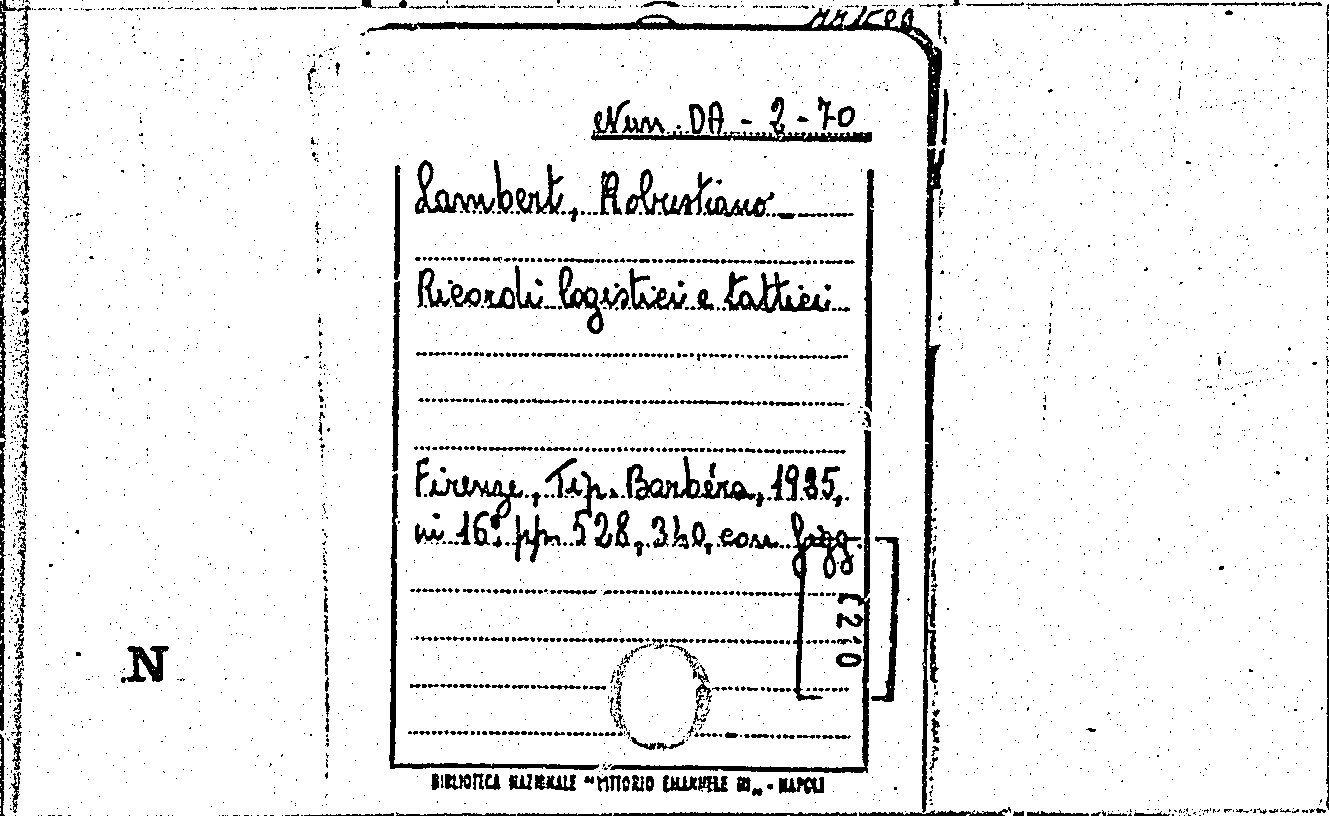 Nun. DA - 2 - 70
Lambert, Robustiano
Ricordi logistici e tattici
Firenze, Tip. Barbéra, 1935,
in 16°, pp. 528, 340, con figg.
N
BIBLIOTECA NAZIONALE "VITTORIO EMANUELE III" - NAPOLI